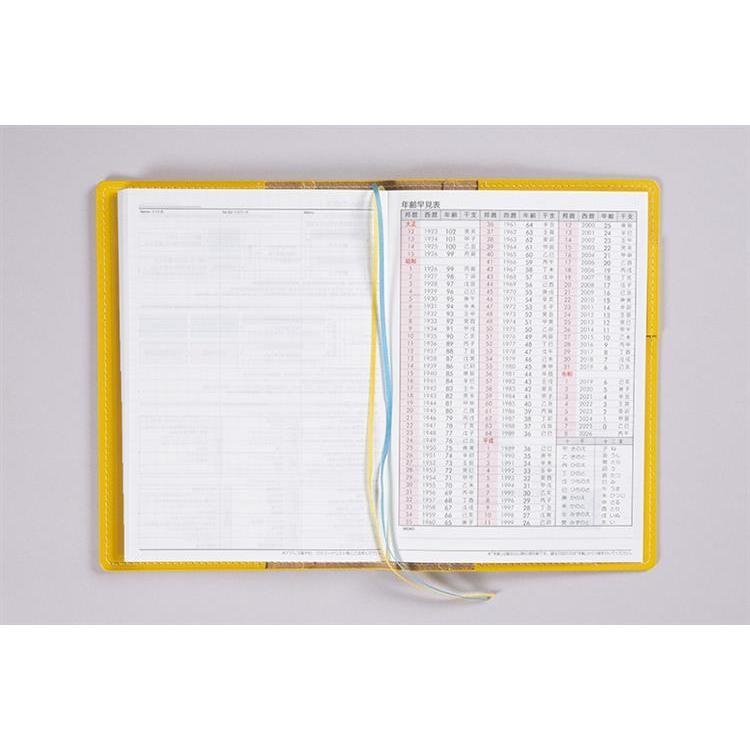 年齢早見表
邦暦 西暦 年齢 干支
大正
12 1923 102 癸亥
13 1924 101 甲子
14 1925 100 乙丑
15 1926 99 丙寅
昭和
1 1926 99 丙寅
2 1927 98 丁卯
3 1928 97 戊辰
4 1929 96 己巳
5 1930 95 庚午
6 1931 94 辛未
7 1932 93 壬申
8 1933 92 癸酉
9 1934 91 甲戌
10 1935 90 乙亥
11 1936 89 丙子
12 1937 88 丁丑
13 1938 87 戊寅
14 1939 86 己卯
15 1940 85 庚辰
16 1941 84 辛巳
17 1942 83 壬午
18 1943 82 癸未
19 1944 81 甲申
20 1945 80 乙酉
21 1946 79 丙戌
22 1947 78 丁亥
23 1948 77 戊子
24 1949 76 己丑
25 1950 75 庚寅
26 1951 74 辛卯
27 1952 73 壬辰
28 1953 72 癸巳
29 1954 71 甲午
30 1955 70 乙未
31 1956 69 丙申
32 1957 68 丁酉
33 1958 67 戊戌
34 1959 66 己亥
35 1960 65 庚子
MEMO
邦暦 西暦 年齢 干支
36 1961 64 辛丑
37 1962 63 壬寅
38 1963 62 癸卯
39 1964 61 甲辰
40 1965 60 乙巳
41 1966 59 丙午
42 1967 58 丁未
43 1968 57 戊申
44 1969 56 己酉
45 1970 55 庚戌
46 1971 54 辛亥
47 1972 53 壬子
48 1973 52 癸丑
49 1974 51 甲寅
50 1975 50 乙卯
51 1976 49 丙辰
52 1977 48 丁巳
53 1978 47 戊午
54 1979 46 己未
55 1980 45 庚申
56 1981 44 辛酉
57 1982 43 壬戌
58 1983 42 癸亥
59 1984 41 甲子
60 1985 40 乙丑
61 1986 39 丙寅
62 1987 38 丁卯
63 1988 37 戊辰
64 1989 36 己巳
平成
1 1989 36 己巳
2 1990 35 庚午
3 1991 34 辛未
4 1992 33 壬申
5 1993 32 癸酉
6 1994 31 甲戌
7 1995 30 乙亥
8 1996 29 丙子
9 1997 28 丁丑
10 1998 27 戊寅
11 1999 26 己卯
邦暦 西暦 年齢 干支
12 2000 25 庚辰
13 2001 24 辛巳
14 2002 23 壬午
15 2003 22 癸未
16 2004 21 甲申
17 2005 20 乙酉
18 2006 19 丙戌
19 2007 18 丁亥
20 2008 17 戊子
21 2009 16 己丑
22 2010 15 庚寅
23 2011 14 辛卯
24 2012 13 壬辰
25 2013 12 癸巳
26 2014 11 甲午
27 2015 10 乙未
28 2016 9 丙申
29 2017 8 丁酉
30 2018 7 戊戌
31 2019 6 己亥
令和
1 2019 6 己亥
2 2020 5 庚子
3 2021 4 辛丑
4 2022 3 壬寅
5 2023 2 癸卯
6 2024 1 甲辰
7 2025 0 乙巳
8 2026 丙午
十 干 十 二 支
甲 きのえ 子 ね
乙 きのと 丑 うし
丙 ひのえ 寅 とら
丁 ひのと 卯 う
戊 つちのえ 辰 たつ
己 つちのと 巳 み
庚 かのえ 午 うま
辛 かのと 未 ひつじ
壬 みずのえ 申 さる
癸 みずのと 酉 とり
戌 いぬ
亥 い